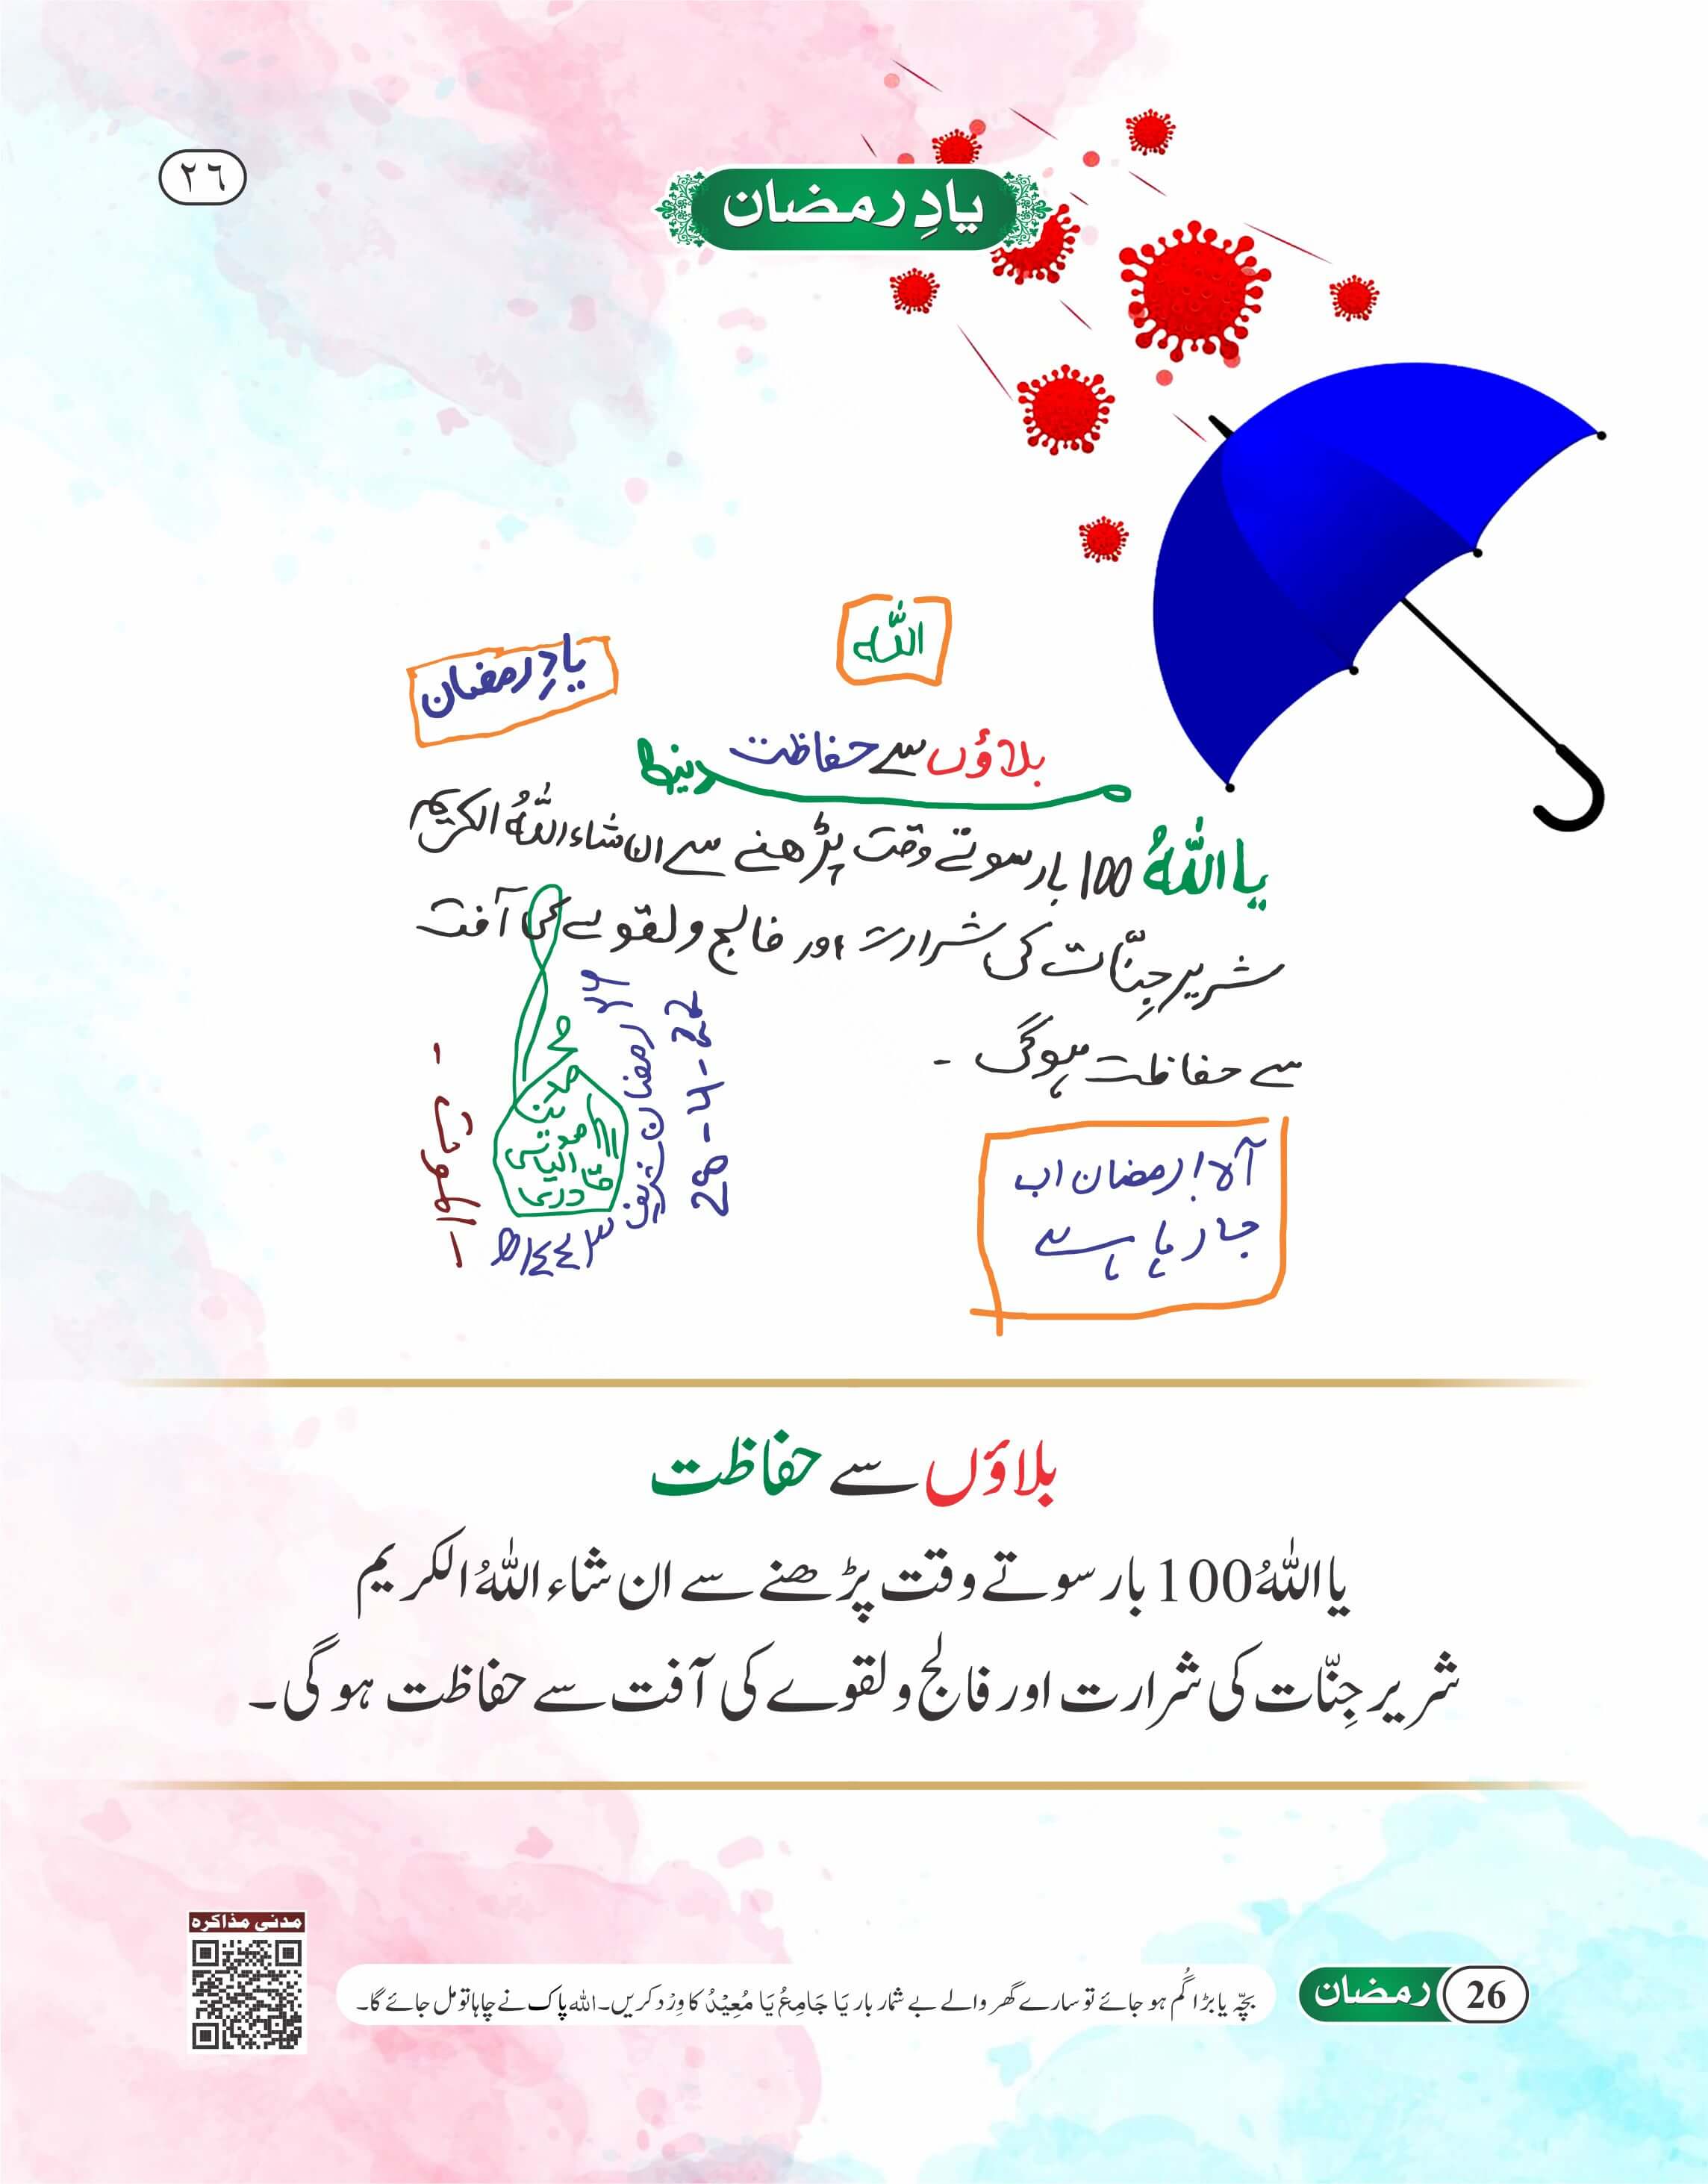 ۲٦
یادِ رمضان
اللّٰه
یادِ رمضان
بلاؤں سے حفاظت
یااللّٰهُ 100 بار سوتے وقت پڑھنے سے ان شاء اللّٰهُ الکریم
شریر جِنّات کی شرارت اور فالج و لقوے کی آفت
سے حفاظت ہوگی -
آہ! رمضان اب
جا رہا ہے
رمضان شریف
28-4-22
بلاؤں سے حفاظت
یااللّٰهُ 100 بار سوتے وقت پڑھنے سے ان شاء اللّٰهُ الکریم
شریر جِنّات کی شرارت اور فالج و لقوے کی آفت سے حفاظت ہوگی۔
مدنی مذاکرہ
26 رمضان
بچّہ یا بڑا گُم ہو جائے تو سارے گھر والے بے شمار بار یَا جَامِعُ یَا مُعِیْدُ کا وِرْد کریں۔ اللّٰه پاک نے چاہا تو مل جائے گا۔